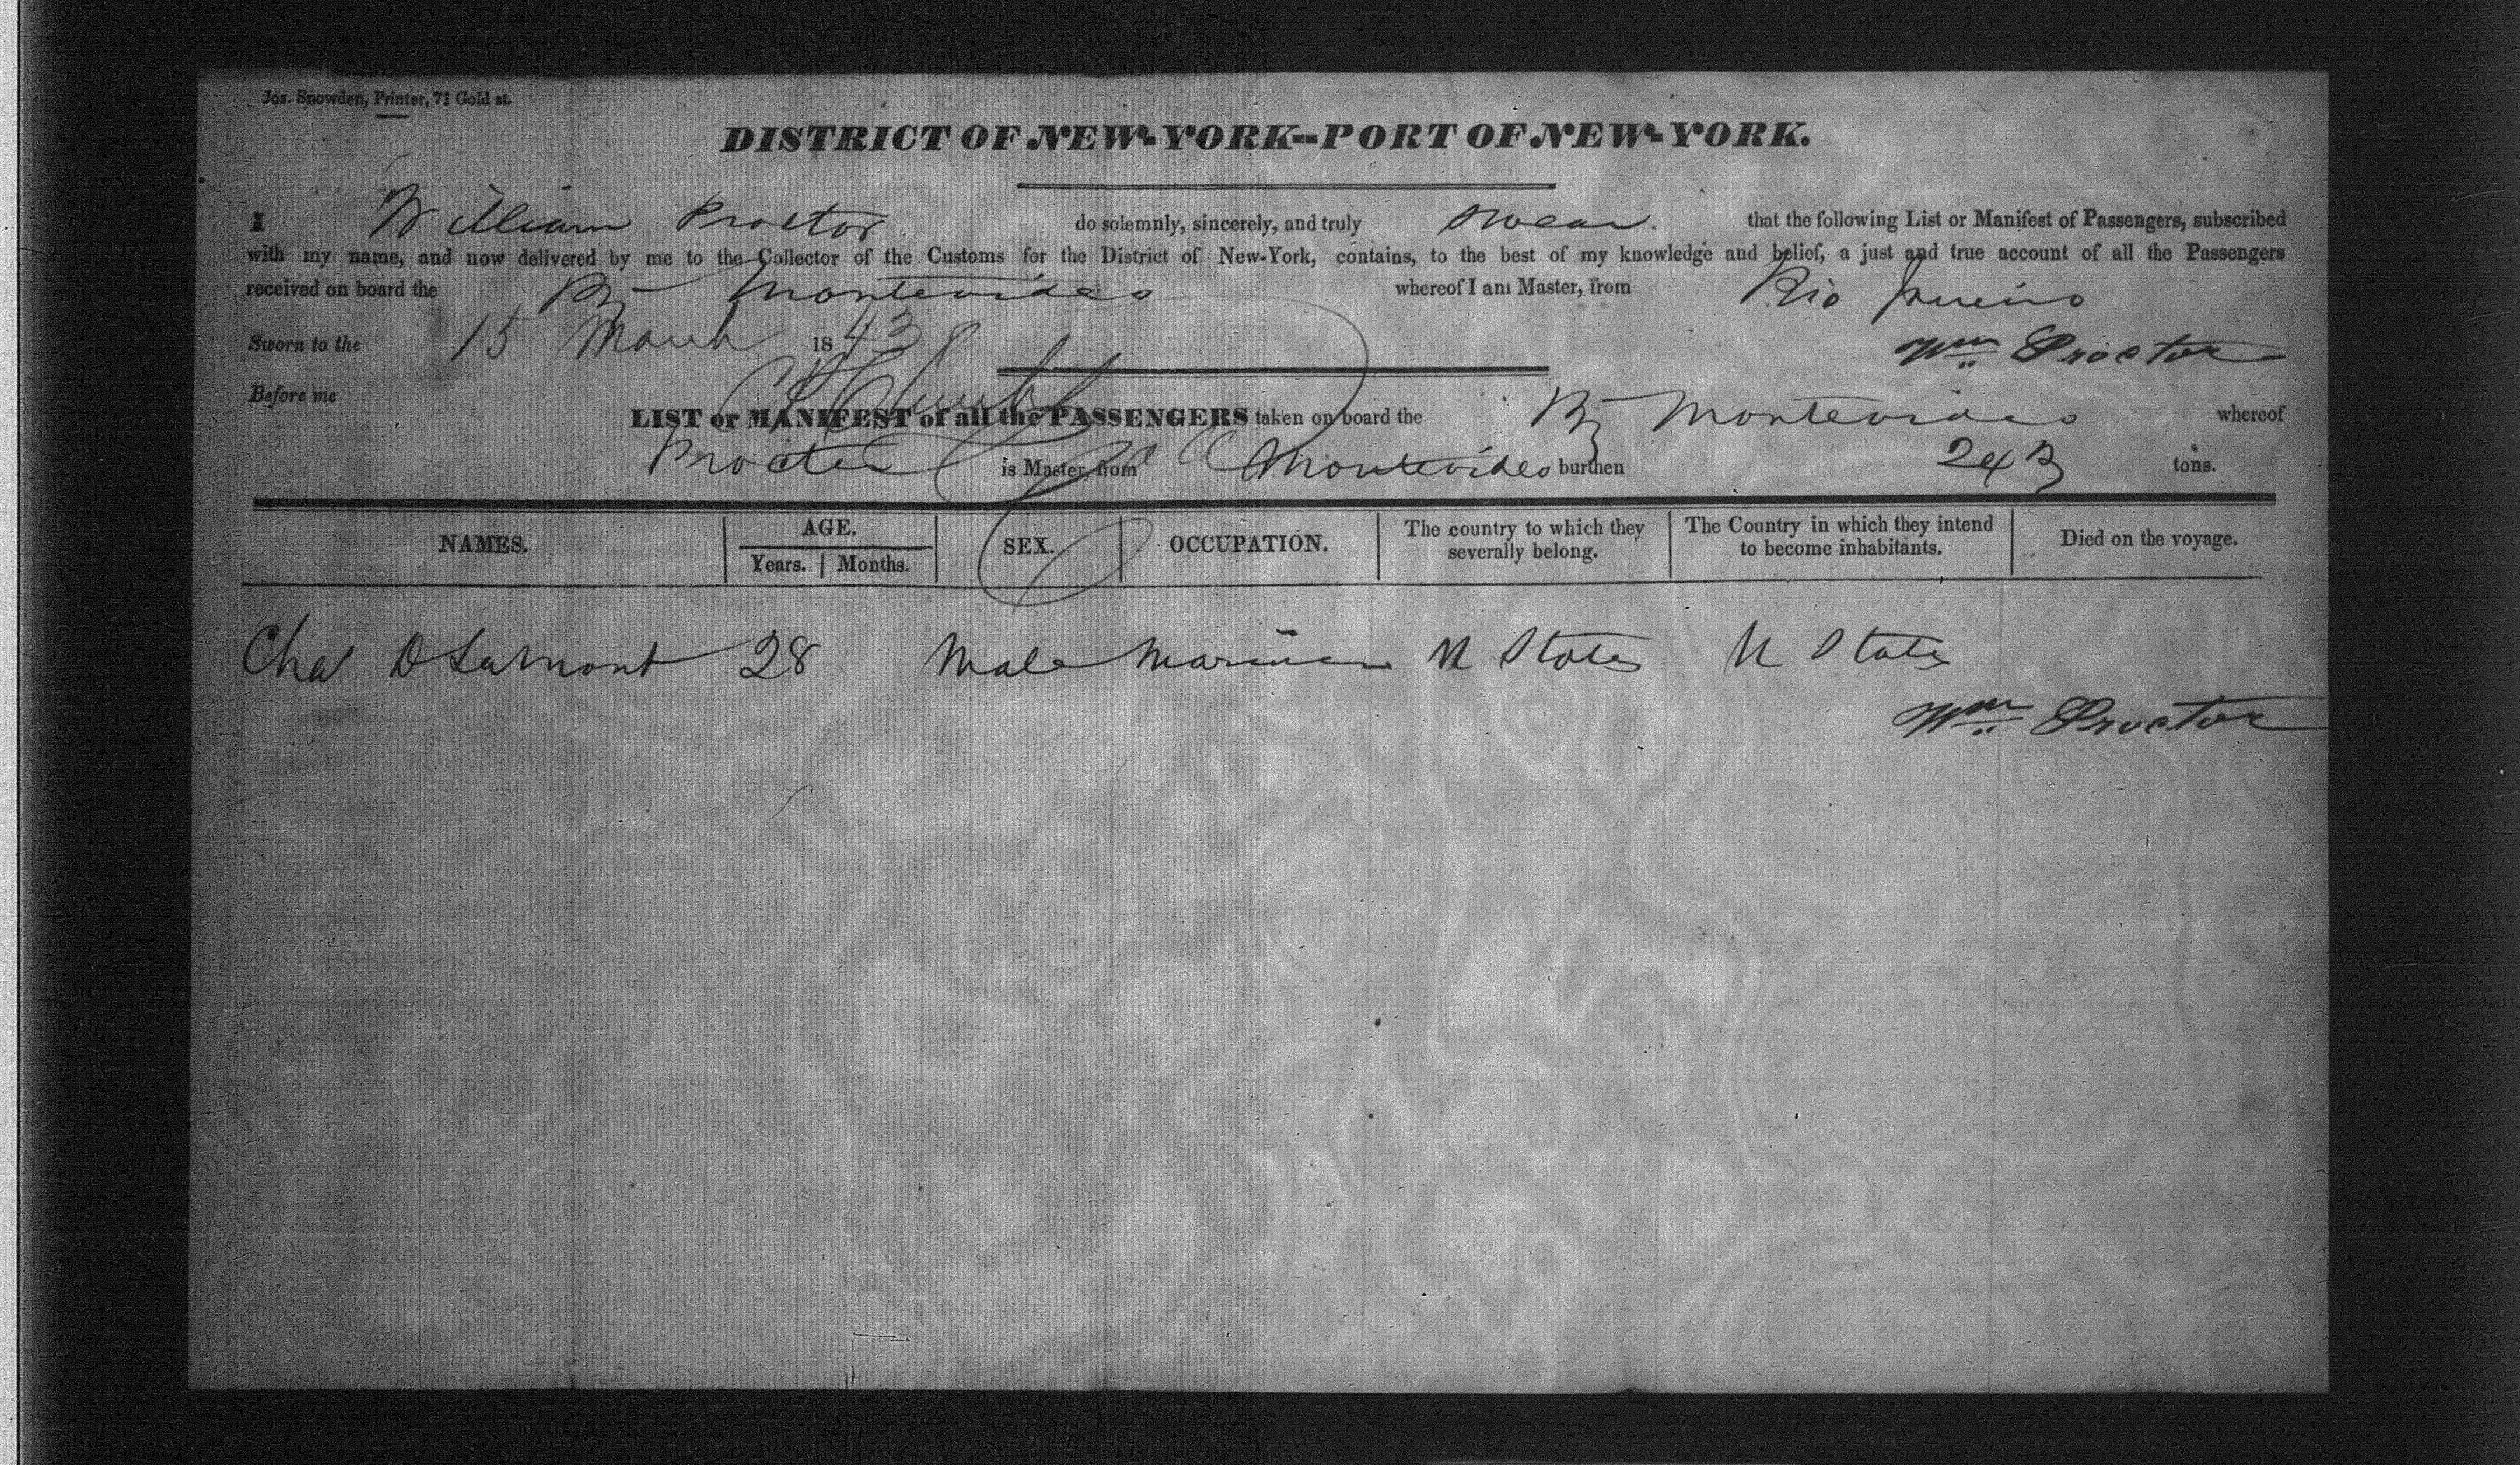 Jos. Snowden, Printer, 71 Gold st.
DISTRICT OF NEW-YORK--PORT OF NEW-YORK.
I William Proctor do solemnly, sincerely, and truly swear. that the following List or Manifest of Passengers, subscribed
with my name, and now delivered by me to the Collector of the Customs for the District of New-York, contains, to the best of my knowledge and belief, a just and true account of all the Passengers
received on board the Montevideo whereof I am Master, from Rio Janeiro
Sworn to the 15 March 1843
Wm Proctor
Before me
LIST or MANIFEST of all the PASSENGERS taken on board the Montevideo whereof
Proctor is Master, from Montevideo burthen 243 tons.
NAMES. AGE. SEX. OCCUPATION. The country to which they severally belong. The Country in which they intend to become inhabitants. Died on the voyage.
Years. Months.
Cha D Lamont 28 Male Mariner U States U States
Wm Proctor